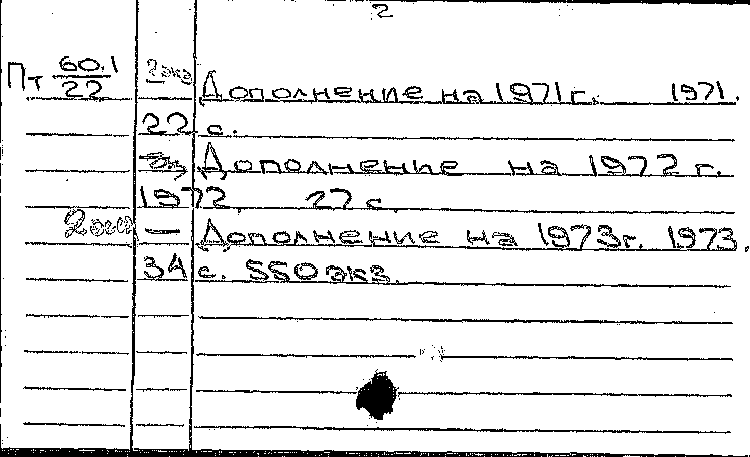 2
Пт 60.1/22 2 экз Дополнение на 1971 г. 1971.
22 с.
Дополнение на 1972 г.
1972. 27 с.
2 экз — Дополнение на 1973 г. 1973.
34 с. 550 экз.